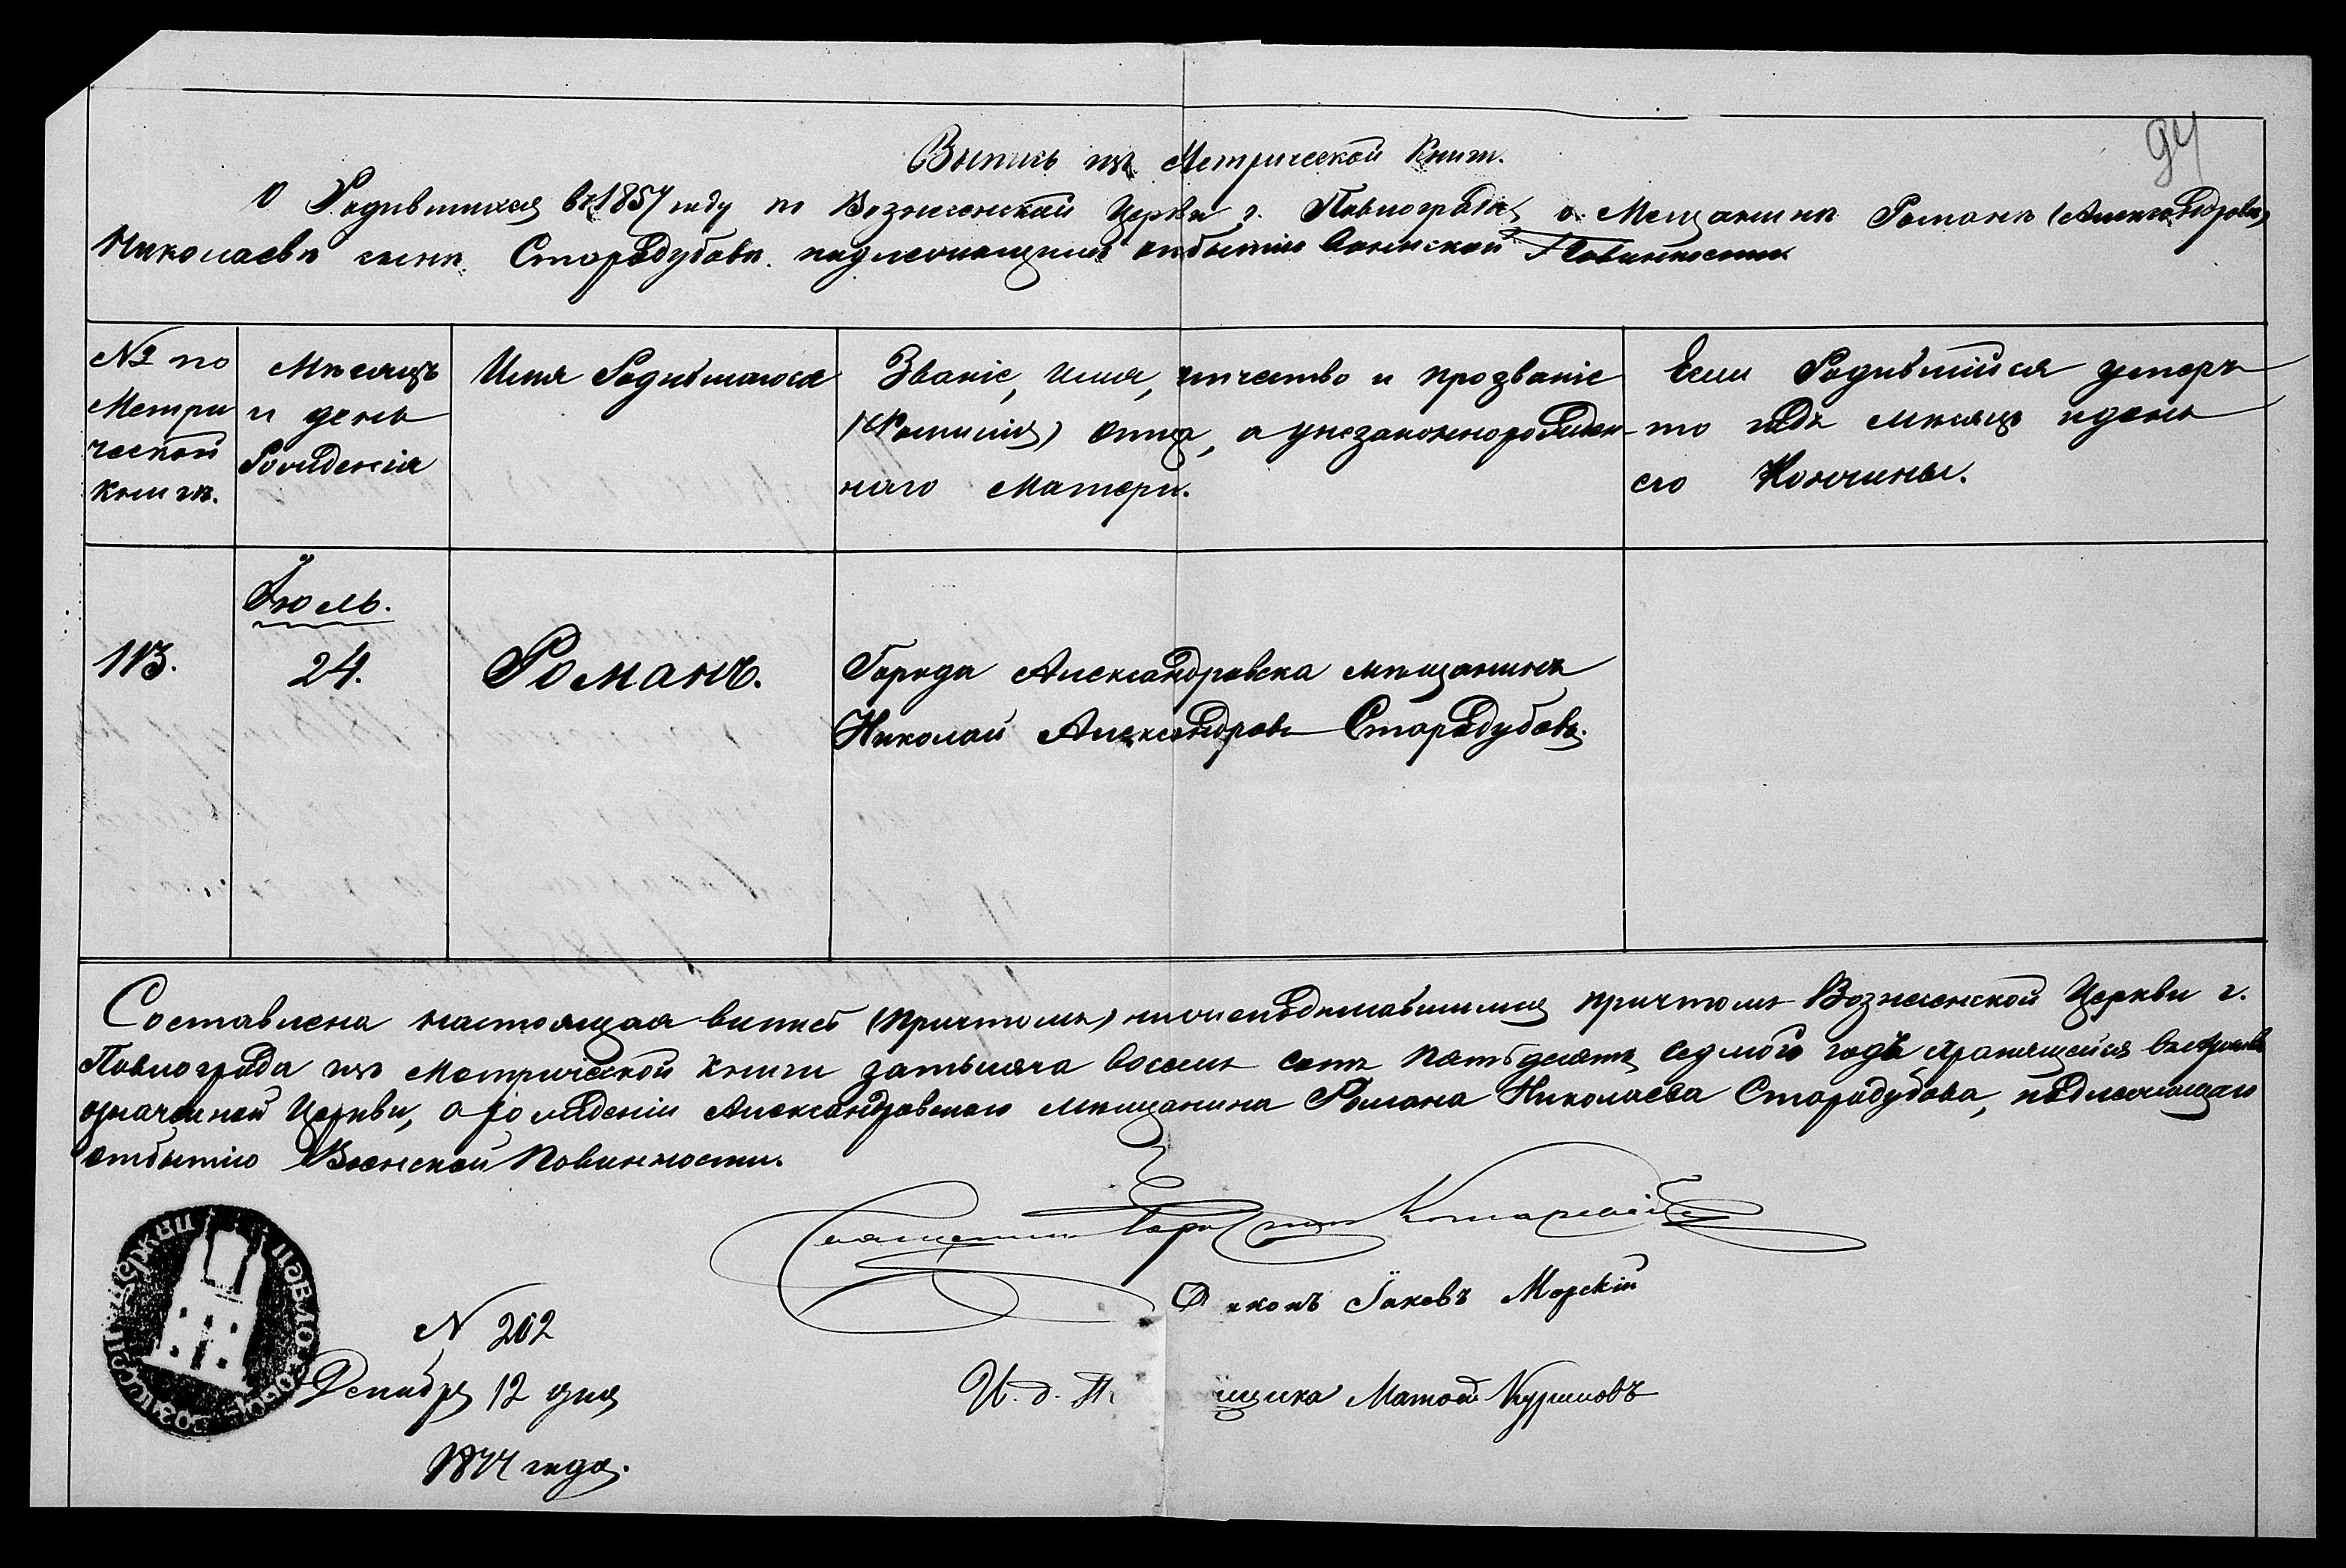 94
Выпись изъ Метрической Книги.
О Родившихся въ 1857 году по Вознесенской Церкви г. Павлограда, о Мещанинѣ Романѣ (Александровѣ)
Николаевѣ сынѣ Стародубовѣ подлежащимъ отбытію Воинской Повинности
№ по Метрической книгѣ.
Мѣсяцъ и день Рожденія
Имя Родившагося
Званіе, имя, отчество и прозваніе (Фамилія) отца, а у незаконнорожденнаго Матери.
Если Родившійся умеръ то годъ мѣсяцъ и день его Кончины.
113.
Іюль.
24.
Романъ.
Города Александровска мѣщанинъ
Николай Александровъ Стародубовъ.
Составлена настоящая выпись (причтомъ) нижеподписавшимся причтомъ Вознесенской Церкви г.
Павлограда изъ Метрической книги за тысяча восемь сотъ пятьдесятъ седмой годъ, хранящейся въ
означенной Церкви, о рожденіи Александровскаго мѣщанина Романа Николаева Стародубова, подлежащаго
отбытію Воинской Повинности.
Священникъ
Діаконъ Іаковъ Морскій
И. д. щика Матвей Куриловъ
N 202
Декабря 12 дня
1877 года.
Вознесен. церкви Павлогра